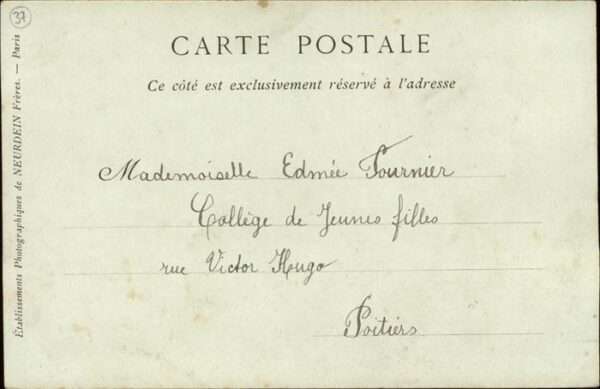 37
CARTE POSTALE
Ce côté est exclusivement réservé à l'adresse
Mademoiselle Edmée Fournier
Collège de Jeunes filles
rue Victor Hugo
Poitiers
Établissements Photographiques de NEURDEIN Frères. — Paris